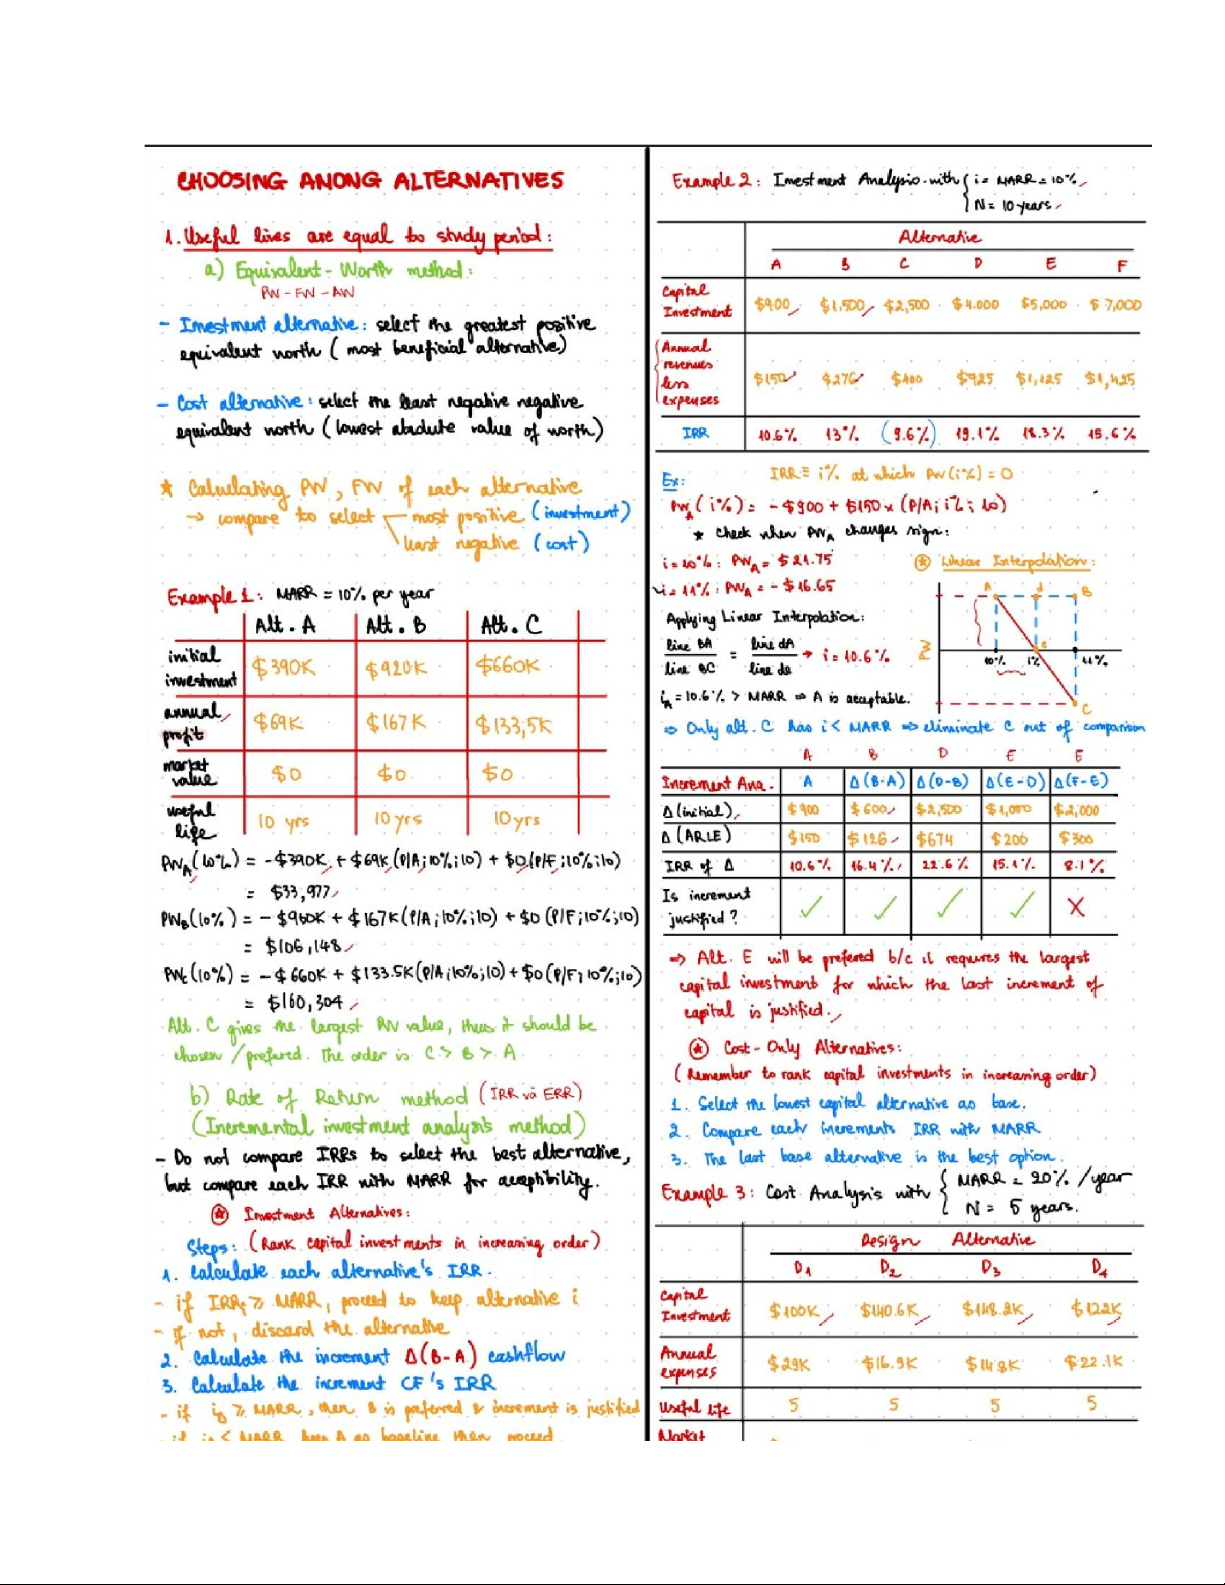 CHOOSING AMONG ALTERNATIVES
1. Useful lives are equal to study period :
a) Equivalent - Worth method :
PW - FW - AW
- Investment alternative : select the greatest positive
equivalent worth ( most beneficial alternative)
- Cost alternative : select the least negative negative
equivalent worth ( lowest absolute value of worth)
* Calculating PW , FW of each alternative
→ compare to select most positive ( investment)
least negative ( cost )
Example 1 : MARR = 10% per year
Alt. A Alt. B Alt. C
initial investment $390K $920K $660K
annual profit $69K $167K $133,5K
market value $0 $0 $0
useful life 10 yrs 10 yrs 10 yrs
PWA(10%) = -$390K + $69K(P/A;10%;10) + $0(P/F;10%;10)
= $33,977
PWB(10%) = -$920K + $167K(P/A;10%;10) + $0(P/F;10%;10)
= $106,148
PWC(10%) = -$660K + $133.5K(P/A;10%;10) + $0(P/F;10%;10)
= $160,304
Alt. C gives the largest PW value, thus it should be
chosen / prefered. The order is C > B > A
b) Rate of Return method ( IRR và ERR)
(Incremental investment analysis method)
- Do not compare IRRs to select the best alternative,
but compare each IRR with MARR for acceptibility.
⊛ Investment Alternatives :
Steps : (Rank capital investments in increasing order)
1. Calculate each alternative's IRR.
- if IRRi ≥ MARR, proceed to keep alternative i
- if not, discard the alternative
2. Calculate the increment Δ(B-A) cashflow
3. Calculate the increment CF's IRR
- if iΔ ≥ MARR, then B is preferred & increment is justified
- if iΔ < MARR, keep A as baseline then proceed
Example 2 : Investment Analysis with { i = MARR = 10%
N = 10 years
Alternative
A B C D E F
Capital Investment $900 $1,500 $2,500 $4.000 $5,000 $7,000
Annual revenues less expenses $150 $276 $400 $925 $1,125 $1,425
IRR 10.6% 13% (9.6%) 19.1% 18.3% 15.6%
Ex : IRR ≡ i% at which PW(i%) = 0
PWA(i%) = -$900 + $150 x (P/A; i%; 10)
* check when PWA changes sign :
i = 10% : PWA = $21.75
i = 11% : PWA = -$16.65
⊛ Linear Interpolation :
Applying Linear Interpolation :
line BA / line BC = line dA / line de → i = 10.6%
A d B
PW
10% i% e 11%
C
iA = 10.6% > MARR ⇒ A is acceptable.
⇒ Only alt. C has i < MARR ⇒ eliminate C out of comparison
A B D E E
Increment Ana. A Δ(B-A) Δ(D-B) Δ(E-D) Δ(F-E)
Δ(initial) $900 $600 $2,500 $1,000 $2,000
Δ(ARLE) $150 $126 $674 $200 $300
IRR of Δ 10.6% 16.4% 22.6% 15.1% 8.1%
Is increment justified ? ✓ ✓ ✓ ✓ X
⇒ Alt. E will be prefered b/c it requires the largest
capital investment for which the last increment of
capital is justified.
⊛ Cost - Only Alternatives :
( Remember to rank capital investments in increasing order)
1. Select the lowest capital alternative as base.
2. Compare each increments IRR with MARR
3. The last base alternative is the best option.
Example 3 : Cost Analysis with { MARR = 20% /year
N = 5 years.
Design Alternative
D1 D2 D3 D4
Capital Investment $100K $140.6K $148.2K $122K
Annual expenses $29K $16.9K $14.8K $22.1K
Useful life 5 5 5 5
Market